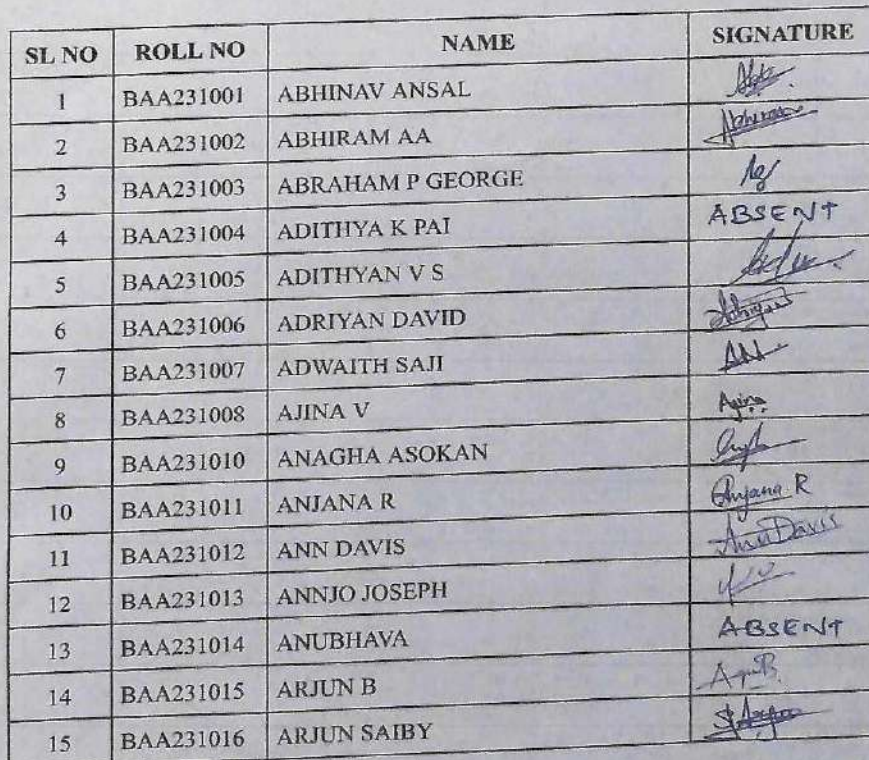 SL NO ROLL NO NAME SIGNATURE
1 BAA231001 ABHINAV ANSAL
2 BAA231002 ABHIRAM AA Abhiram
3 BAA231003 ABRAHAM P GEORGE
4 BAA231004 ADITHYA K PAI ABSENT
5 BAA231005 ADITHYAN V S
6 BAA231006 ADRIYAN DAVID
7 BAA231007 ADWAITH SAJI
8 BAA231008 AJINA V Ajina
9 BAA231010 ANAGHA ASOKAN
10 BAA231011 ANJANA R Anjana R
11 BAA231012 ANN DAVIS Ann Davis
12 BAA231013 ANNJO JOSEPH
13 BAA231014 ANUBHAVA ABSENT
14 BAA231015 ARJUN B
15 BAA231016 ARJUN SAIBY